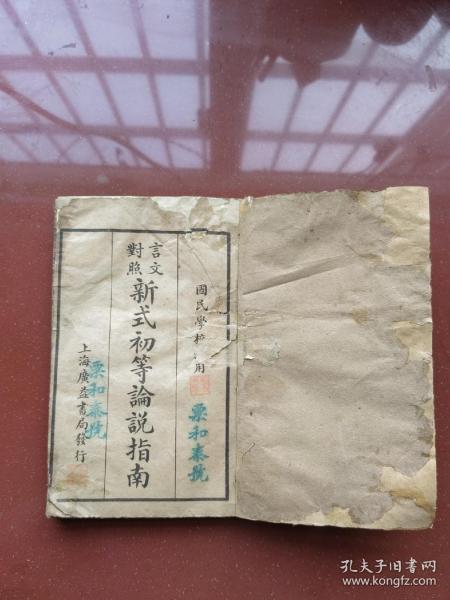 國民學校 用
栗和泰號
言文
對照
新式初等論說指南
上海廣益書局發行
栗和泰號
孔夫子旧书网
www.kongfz.com